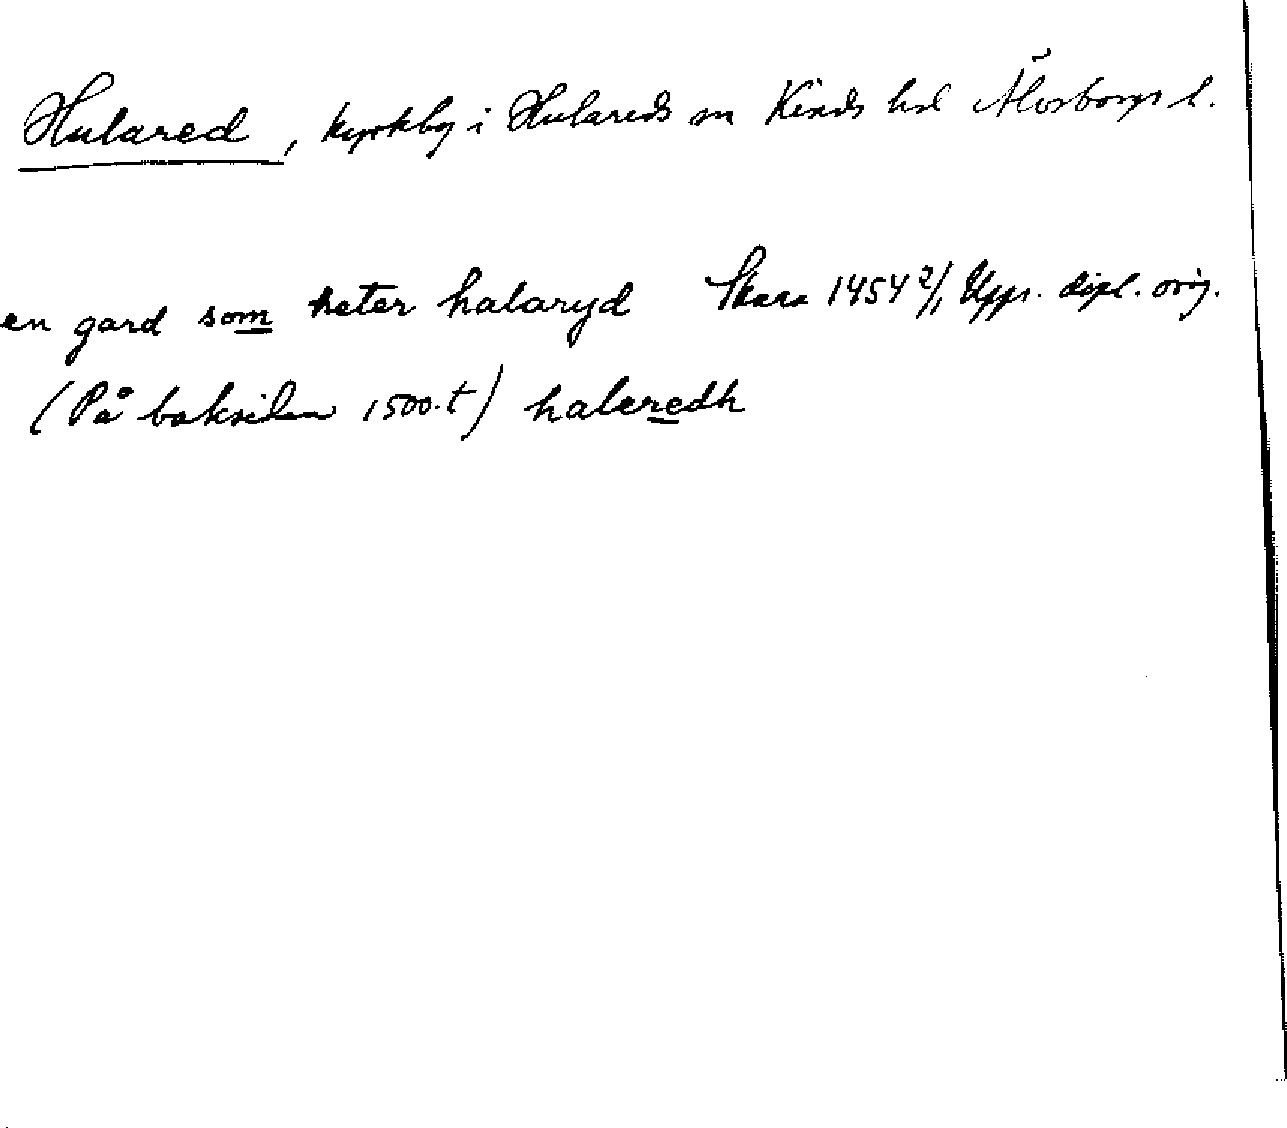 Hulared, kyrkby i Hulareds sn Kinds hd Älvsborgs l.
en gard som heter halaryd Skara 1454 2/1 Upps. dipl. orig.
(På baksidan 1500-t) haleredh